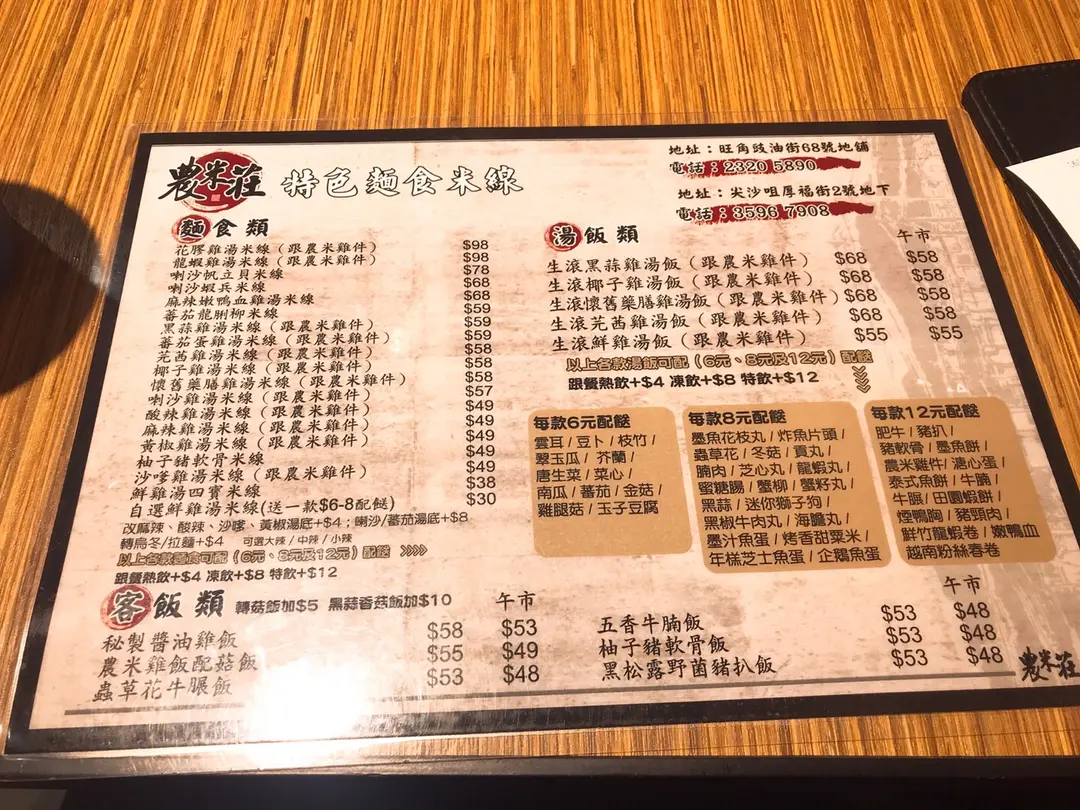 農米莊 特色麵食米線
地址：旺角豉油街68號地舖
電話：2320 5890
地址：尖沙咀厚福街2號地下
電話：3596 7908
麵食類
花膠雞湯米線（跟農米雞件） $98
龍蝦雞湯米線（跟農米雞件） $98
喇沙帆立貝米線 $78
喇沙蝦兵米線 $68
麻辣嫩鴨血雞湯米線 $68
蕃茄龍脷柳米線 $59
黑蒜雞湯米線（跟農米雞件） $59
蕃茄蛋雞湯米線（跟農米雞件） $59
芫茜雞湯米線（跟農米雞件） $58
椰子雞湯米線（跟農米雞件） $58
懷舊藥膳雞湯米線（跟農米雞件） $58
喇沙雞湯米線（跟農米雞件） $57
酸辣雞湯米線（跟農米雞件） $49
麻辣雞湯米線（跟農米雞件） $49
黃椒雞湯米線（跟農米雞件） $49
柚子豬軟骨米線 $49
沙嗲雞湯米線（跟農米雞件） $49
鮮雞湯四寶米線 $38
自選鮮雞湯米線(送一款$6-8配餸) $30
改麻辣、酸辣、沙嗲、黃椒湯底+$4；喇沙/蕃茄湯底+$8
轉烏冬/拉麵+$4 可選大辣 / 中辣 / 小辣
以上各款麵食可配（6元、8元及12元）配餸 >>>>
跟餐熱飲+$4 凍飲+$8 特飲+$12
湯飯類 午市
生滾黑蒜雞湯飯（跟農米雞件） $68 $58
生滾椰子雞湯飯（跟農米雞件） $68 $58
生滾懷舊藥膳雞湯飯（跟農米雞件） $68 $58
生滾芫茜雞湯飯（跟農米雞件） $68 $55
生滾鮮雞湯飯（跟農米雞件） $55
以上各款湯飯可配（6元、8元及12元）配餸
跟餐熱飲+$4 凍飲+$8 特飲+$12
每款6元配餸
雲耳 / 豆卜 / 枝竹 /
翠玉瓜 / 芥蘭 /
唐生菜 / 菜心 /
南瓜 / 蕃茄 / 金菇 /
雞腿菇 / 玉子豆腐
每款8元配餸
墨魚花枝丸 / 炸魚片頭 /
蟲草花 / 冬菇 / 貢丸 /
腩肉 / 芝心丸 / 龍蝦丸 /
蜜糖腸 / 蟹柳 / 蟹籽丸 /
黑蒜 / 迷你獅子狗 /
黑椒牛肉丸 / 海膽丸 /
墨汁魚蛋 / 烤香甜粟米 /
年糕芝士魚蛋 / 企鵝魚蛋
每款12元配餸
肥牛 / 豬扒 /
豬軟骨 / 墨魚餅 /
農米雞件/ 溏心蛋 /
泰式魚餅 / 牛腩 /
牛𦟌 / 田園蝦餅 /
煙鴨胸 / 豬頸肉 /
鮮竹龍蝦卷 / 嫩鴨血
越南粉絲春卷
客飯類 轉菇飯加$5 黑蒜香菇飯加$10 午市
秘製醬油雞飯 $58 $53
農米雞飯配菇飯 $55 $49
蟲草花牛𦟌飯 $53 $48
午市
五香牛腩飯 $53 $48
柚子豬軟骨飯 $53 $48
黑松露野菌豬扒飯 $53 $48
農米莊